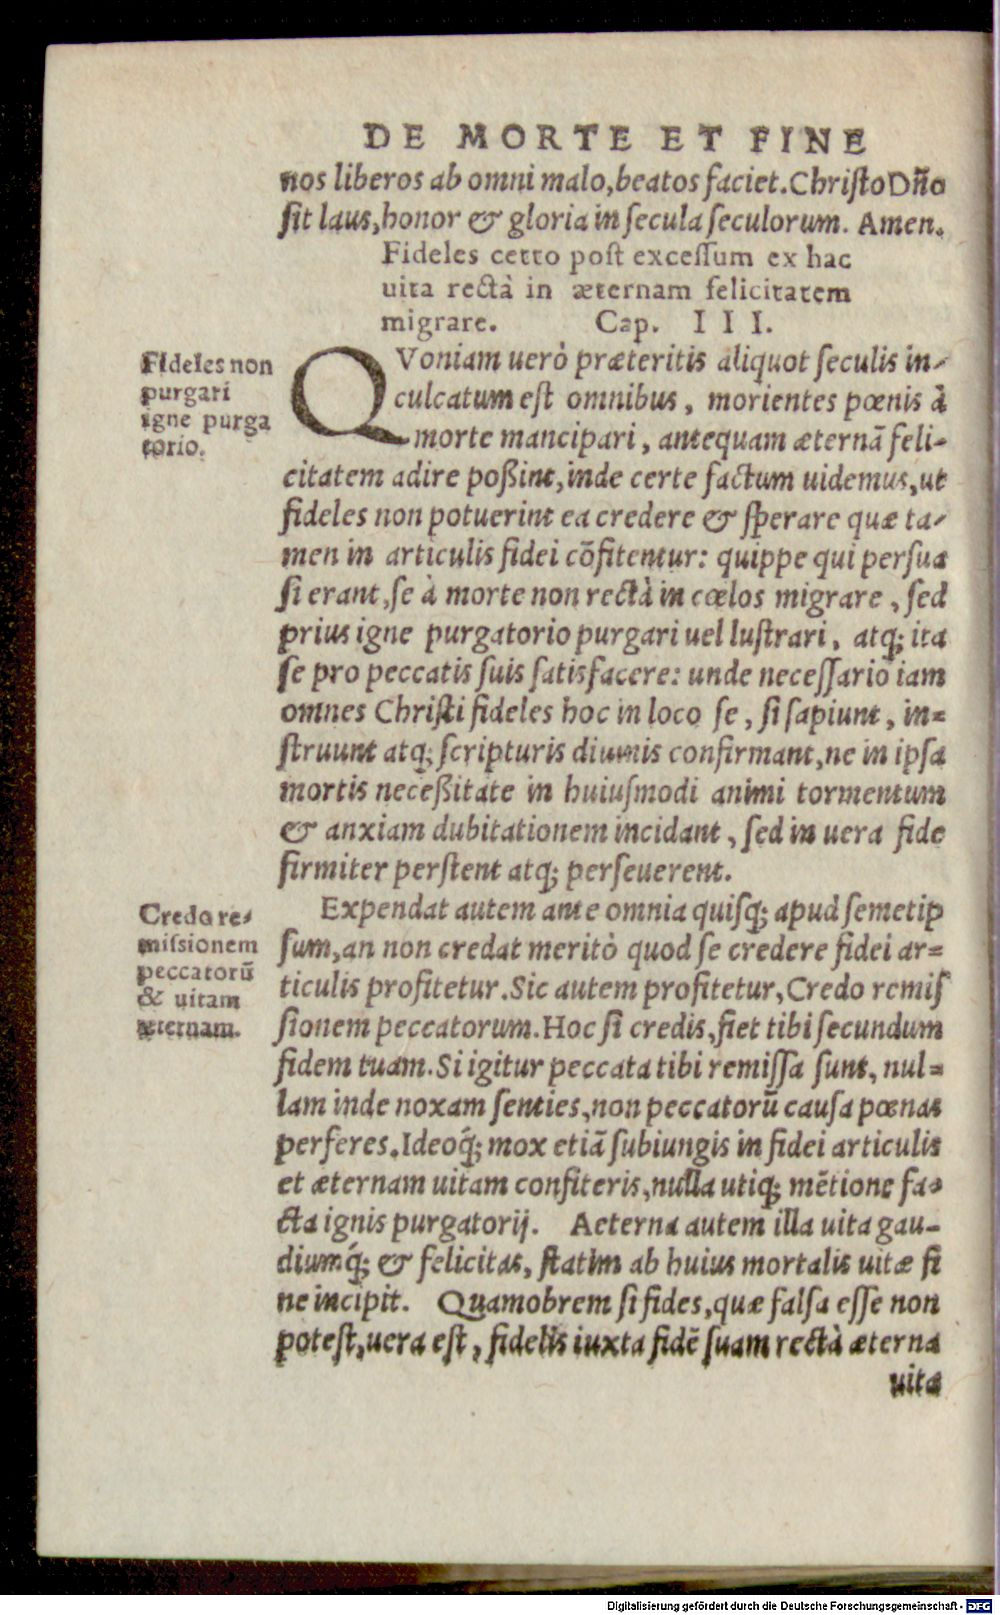 DE MORTE ET FINE
nos liberos ab omni malo, beatos faciet. Christo Dño
sit laus, honor & gloria in secula seculorum. Amen.
Fideles certo post excessum ex hac
uita rectà in æternam felicitatem
migrare. Cap. III.
Fideles non
purgari
igne purga
torio.
QVoniam uerò præteritis aliquot seculis in-
culcatum est omnibus, morientes pœnis à
morte mancipari, antequam æternã feli-
citatem adire poßint, inde certe factum uidemus, ut
fideles non potuerint ea credere & sperare quæ ta-
men in articulis fidei cõfitentur: quippe qui persua
si erant, se à morte non rectà in cœlos migrare, sed
prius igne purgatorio purgari uel lustrari, atq; ita
se pro peccatis suis satisfacere: unde necessario iam
omnes Christi fideles hoc in loco se, si sapiunt, in-
struunt atq; scripturis diuinis confirmant, ne in ipsa
mortis neceßitate in huiusmodi animi tormentum
& anxiam dubitationem incidant, sed in uera fide
firmiter perstent atq; perseuerent.
Credo re-
missionem
peccatorũ
& uitam
æternam.
Expendat autem ante omnia quisq; apud semetip
sum, an non credat meritò quod se credere fidei ar-
ticulis profitetur. Sic autem profitetur, Credo remis
sionem peccatorum. Hoc si credis, fiet tibi secundum
fidem tuam. Si igitur peccata tibi remissa sunt, nul-
lam inde noxam senties, non peccatorũ causa pœnas
perferes. Ideoq́; mox etiã subiungis in fidei articulis
et æternam uitam confiteris, nulla utiq; mẽtione fa-
cta ignis purgatorij. Aeterna autem illa uita gau-
diumq́; & felicitas, statim ab huius mortalis uitæ fi
ne incipit. Quamobrem si fides, quæ falsa esse non
potest, uera est, fidelis iuxta fidẽ suam rectà æterna
uita
Digitalisierung gefördert durch die Deutsche Forschungsgemeinschaft - DFG